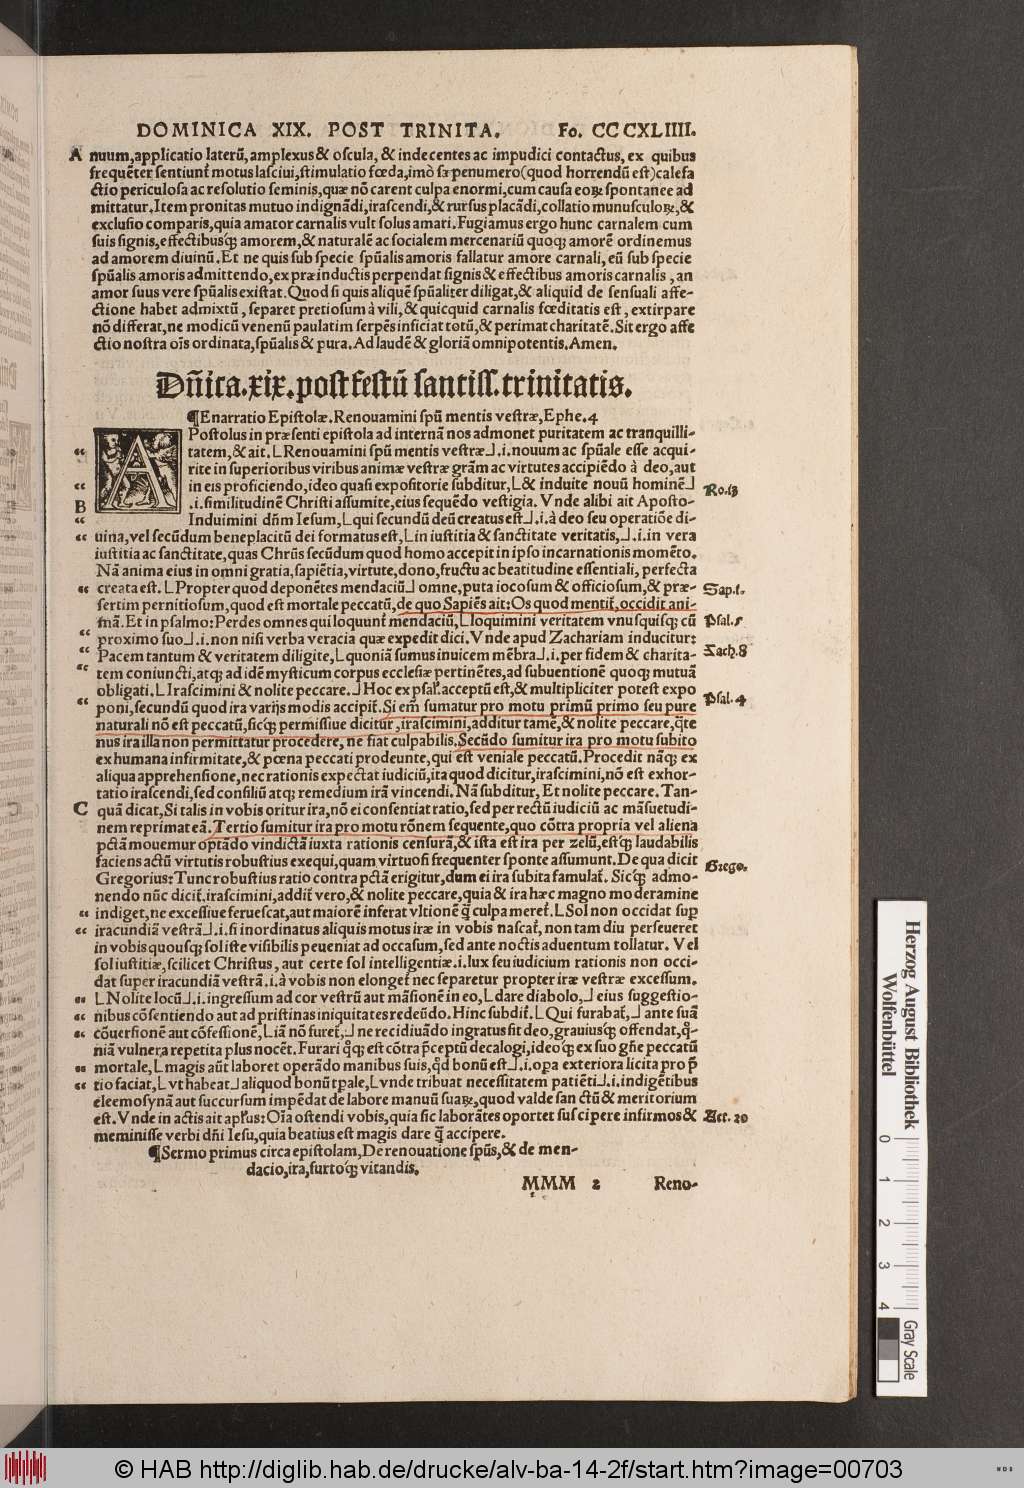 DOMINICA XIX. POST TRINITA. Fo. CCCXLIIII.
A nuum, applicatio laterū, amplexus & oscula, & indecentes ac impudici contactus, ex quibus
frequēter sentiunt motus lasciui, stimulatio fœda, imò sæpenumero (quod horrendū est) calefa
ctio periculosa ac resolutio seminis, quæ nō carent culpa enormi, cum causa eoꝝ spontanee ad
mittatur. Item pronitas mutuo indignādi, irascendi, & rursus placādi, collatio munusculoꝝ, &
exclusio comparis, quia amator carnalis vult solus amari. Fugiamus ergo hunc carnalem cum
suis signis, effectibusqꝫ amorem, & naturalē ac socialem mercenariū quoqꝫ amorē ordinemus
ad amorem diuinū. Et ne quis sub specie spūalis amoris fallatur amore carnali, eū sub specie
spūalis amoris admittendo, ex præinductis perpendat signis & effectibus amoris carnalis, an
amor suus vere spūalis existat. Quod si quis aliquē spūaliter diligat, & aliquid de sensuali affe-
ctione habet admixtū, separet pretiosum à vili, & quicquid carnalis fœditatis est, extirpare
nō differat, ne modicū venenū paulatim serpēs inficiat totū, & perimat charitatē. Sit ergo affe
ctio nostra oīs ordinata, spūalis & pura. Ad laudē & gloriā omnipotentis. Amen.
Dn̄ica.xix.post festū santiss.trinitatis.
¶ Enarratio Epistolæ. Renouamini spū mentis vestræ, Ephe. 4
A Postolus in præsenti epistola ad internā nos admonet puritatem ac tranquilli-
“ tatem, & ait. ⌊Renouamini spū mentis vestræ⌋.i. nouum ac spūale esse acqui-
rite in superioribus viribus animæ vestræ grām ac virtutes accipiēdo à deo, aut
“ in eis proficiendo, ideo quasi expositorie subditur, ⌊& induite nouū hominē⌋ Ro.13
B .i. similitudinē Christi assumite, eius sequēdo vestigia. Vnde alibi ait Aposto-
“ Induimini dn̄m Iesum, ⌊qui secundū deū creatus est⌋.i. à deo seu operatiōe di-
“ uina, vel secūdum beneplacitū dei formatus est, ⌊in iustitia & sanctitate veritatis,⌋.i. in vera
iustitia ac sanctitate, quas Chrūs secūdum quod homo accepit in ipso incarnationis momēto.
Nā anima eius in omni gratia, sapiētia, virtute, dono, fructu ac beatitudine essentiali, perfecta
“ creata est. ⌊Propter quod deponētes mendaciū⌋ omne, puta iocosum & officiosum, & præ- Sap.1.
sertim pernitiosum, quod est mortale peccatū, de quo Sapiēs ait: Os quod mentit̄, occidit ani-
mā. Et in psalmo: Perdes omnes qui loquunt̄ mendaciū, ⌊loquimini veritatem vnusquisqꝫ cū Psal.5
“ proximo suo⌋.i. non nisi verba veracia quæ expedit dici. Vnde apud Zachariam inducitur:
“ Pacem tantum & veritatem diligite, ⌊quoniā sumus inuicem mēbra⌋.i. per fidem & charita- Zach.8
“ tem coniuncti, atqꝫ ad idē mysticum corpus ecclesiæ pertinētes, ad subuentionē quoqꝫ mutuā
obligati. ⌊Irascimini & nolite peccare.⌋ Hoc ex psal. acceptū est, & multipliciter potest expo
“ poni, secundū quod ira varijs modis accipit̄. Si em̄ sumatur pro motu primū primo seu pure Psal.4
naturali nō est peccatū, sicqꝫ permissiue dicitur, irascimini, additur tamē, & nolite peccare, q̄te
nus ira illa non permittatur procedere, ne fiat culpabilis. Secūdo sumitur ira pro motu subito
ex humana infirmitate, & pœna peccati prodeunte, qui est veniale peccatū. Procedit nāqꝫ ex
aliqua apprehensione, nec rationis expectat iudiciū, ita quod dicitur, irascimini, nō est exhor-
tatio irascendi, sed consiliū atqꝫ remedium irā vincendi. Nā subditur, Et nolite peccare. Tan-
C quā dicat, Si talis in vobis oritur ira, nō ei consentiat ratio, sed per rectū iudiciū ac māsuetudi-
nem reprimat eā. Tertio sumitur ira pro motu rōnem sequente, quo cōtra propria vel aliena
pctā mouemur optādo vindictā iuxta rationis censurā, & ista est ira per zelū, estqꝫ laudabilis
faciens actū virtutis robustius exequi, quam virtuosi frequenter sponte assumunt. De qua dicit
Gregorius: Tunc robustius ratio contra pctā erigitur, dum ei ira subita famulat̄. Sicqꝫ admo- Grego.
nendo nūc dicit̄, irascimini, addit̄ vero, & nolite peccare, quia & ira hæc magno moderamine
“ indiget, ne excessiue feruescat, aut maiorē inferat vltionē q̄ culpa meret̄. ⌊Sol non occidat sup
“ iracundiā vestrā⌋.i. si inordinatus aliquis motus iræ in vobis nascat̄, non tam diu perseueret
in vobis quousqꝫ sol iste visibilis peueniat ad occasum, sed ante noctis aduentum tollatur. Vel
sol iustitiæ, scilicet Christus, aut certe sol intelligentiæ.i. lux seu iudicium rationis non occi-
dat super iracundiā vestrā.i. à vobis non elonget̄ nec separetur propter iræ vestræ excessum.
“ ⌊Nolite locū⌋.i. ingressum ad cor vestrū aut māsionē in eo, ⌊dare diabolo,⌋ eius suggestio-
“ nibus cōsentiendo aut ad pristinas iniquitates redeūdo. Hinc subdit̄. ⌊Qui furabat̄,⌋ ante suā
“ cōuersionē aut cōfessionē, ⌊iā nō furet̄,⌋ ne recidiuādo ingratus sit deo, grauiusqꝫ offendat, q̄-
niā vulnera repetita plus nocēt. Furari q̄qꝫ est cōtra p̄ceptū decalogi, ideoqꝫ ex suo gn̄e peccatū
“ mortale, ⌊magis aūt laboret operādo manibus suis, qd̄ bonū est⌋.i. opa exteriora licita pro p̄
“ tio faciat, ⌊vt habeat⌋ aliquod bonū tpale, ⌊vnde tribuat necessitatem patiēti⌋.i. indigētibus
eleemosynā aut succursum impēdat de labore manuū suaꝝ, quod valde sanctū & meritorium
est. Vnde in actis ait apl̄us: Oīa ostendi vobis, quia sic laborātes oportet suscipere infirmos & Act. 20
meminisse verbi dn̄i Iesu, quia beatius est magis dare q̄ accipere.
¶ Sermo primus circa epistolam, De renouatione spūs, & de men-
dacio, ira, furtoqꝫ vitandis.
MMM 2 Reno-
Herzog August Bibliothek
Wolfenbüttel
0 1 2 3 4
Gray Scale
© HAB http://diglib.hab.de/drucke/alv-ba-14-2f/start.htm?image=00703